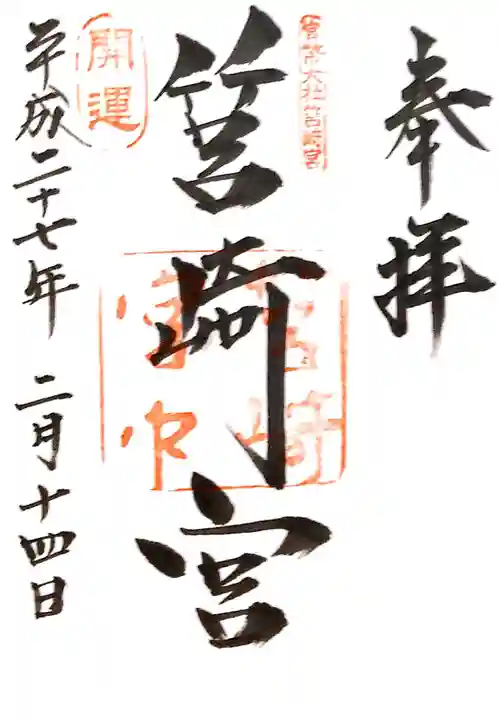 奉拝
官幣大社筥崎宮
筥崎宮
開運
平成二十七年 二月十四日